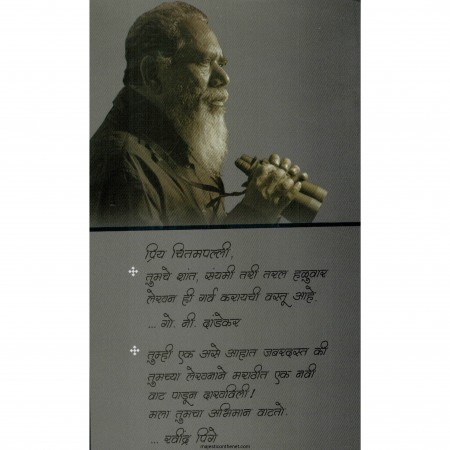 प्रिय चितमपल्ली,
तुमचे शांत, संयमी तरी तरल हळुवार
लेखन ही गर्व करायची वस्तू आहे.
... गो. नी. दांडेकर
तुम्ही एक असे आहात जबरदस्त की
तुमच्या लेखनाने मराठीत एक नवी
वाट पाडून दाखविली!
मला तुमचा अभिमान वाटतो.
... रवींद्र पिंगे
majesticonthenet.com